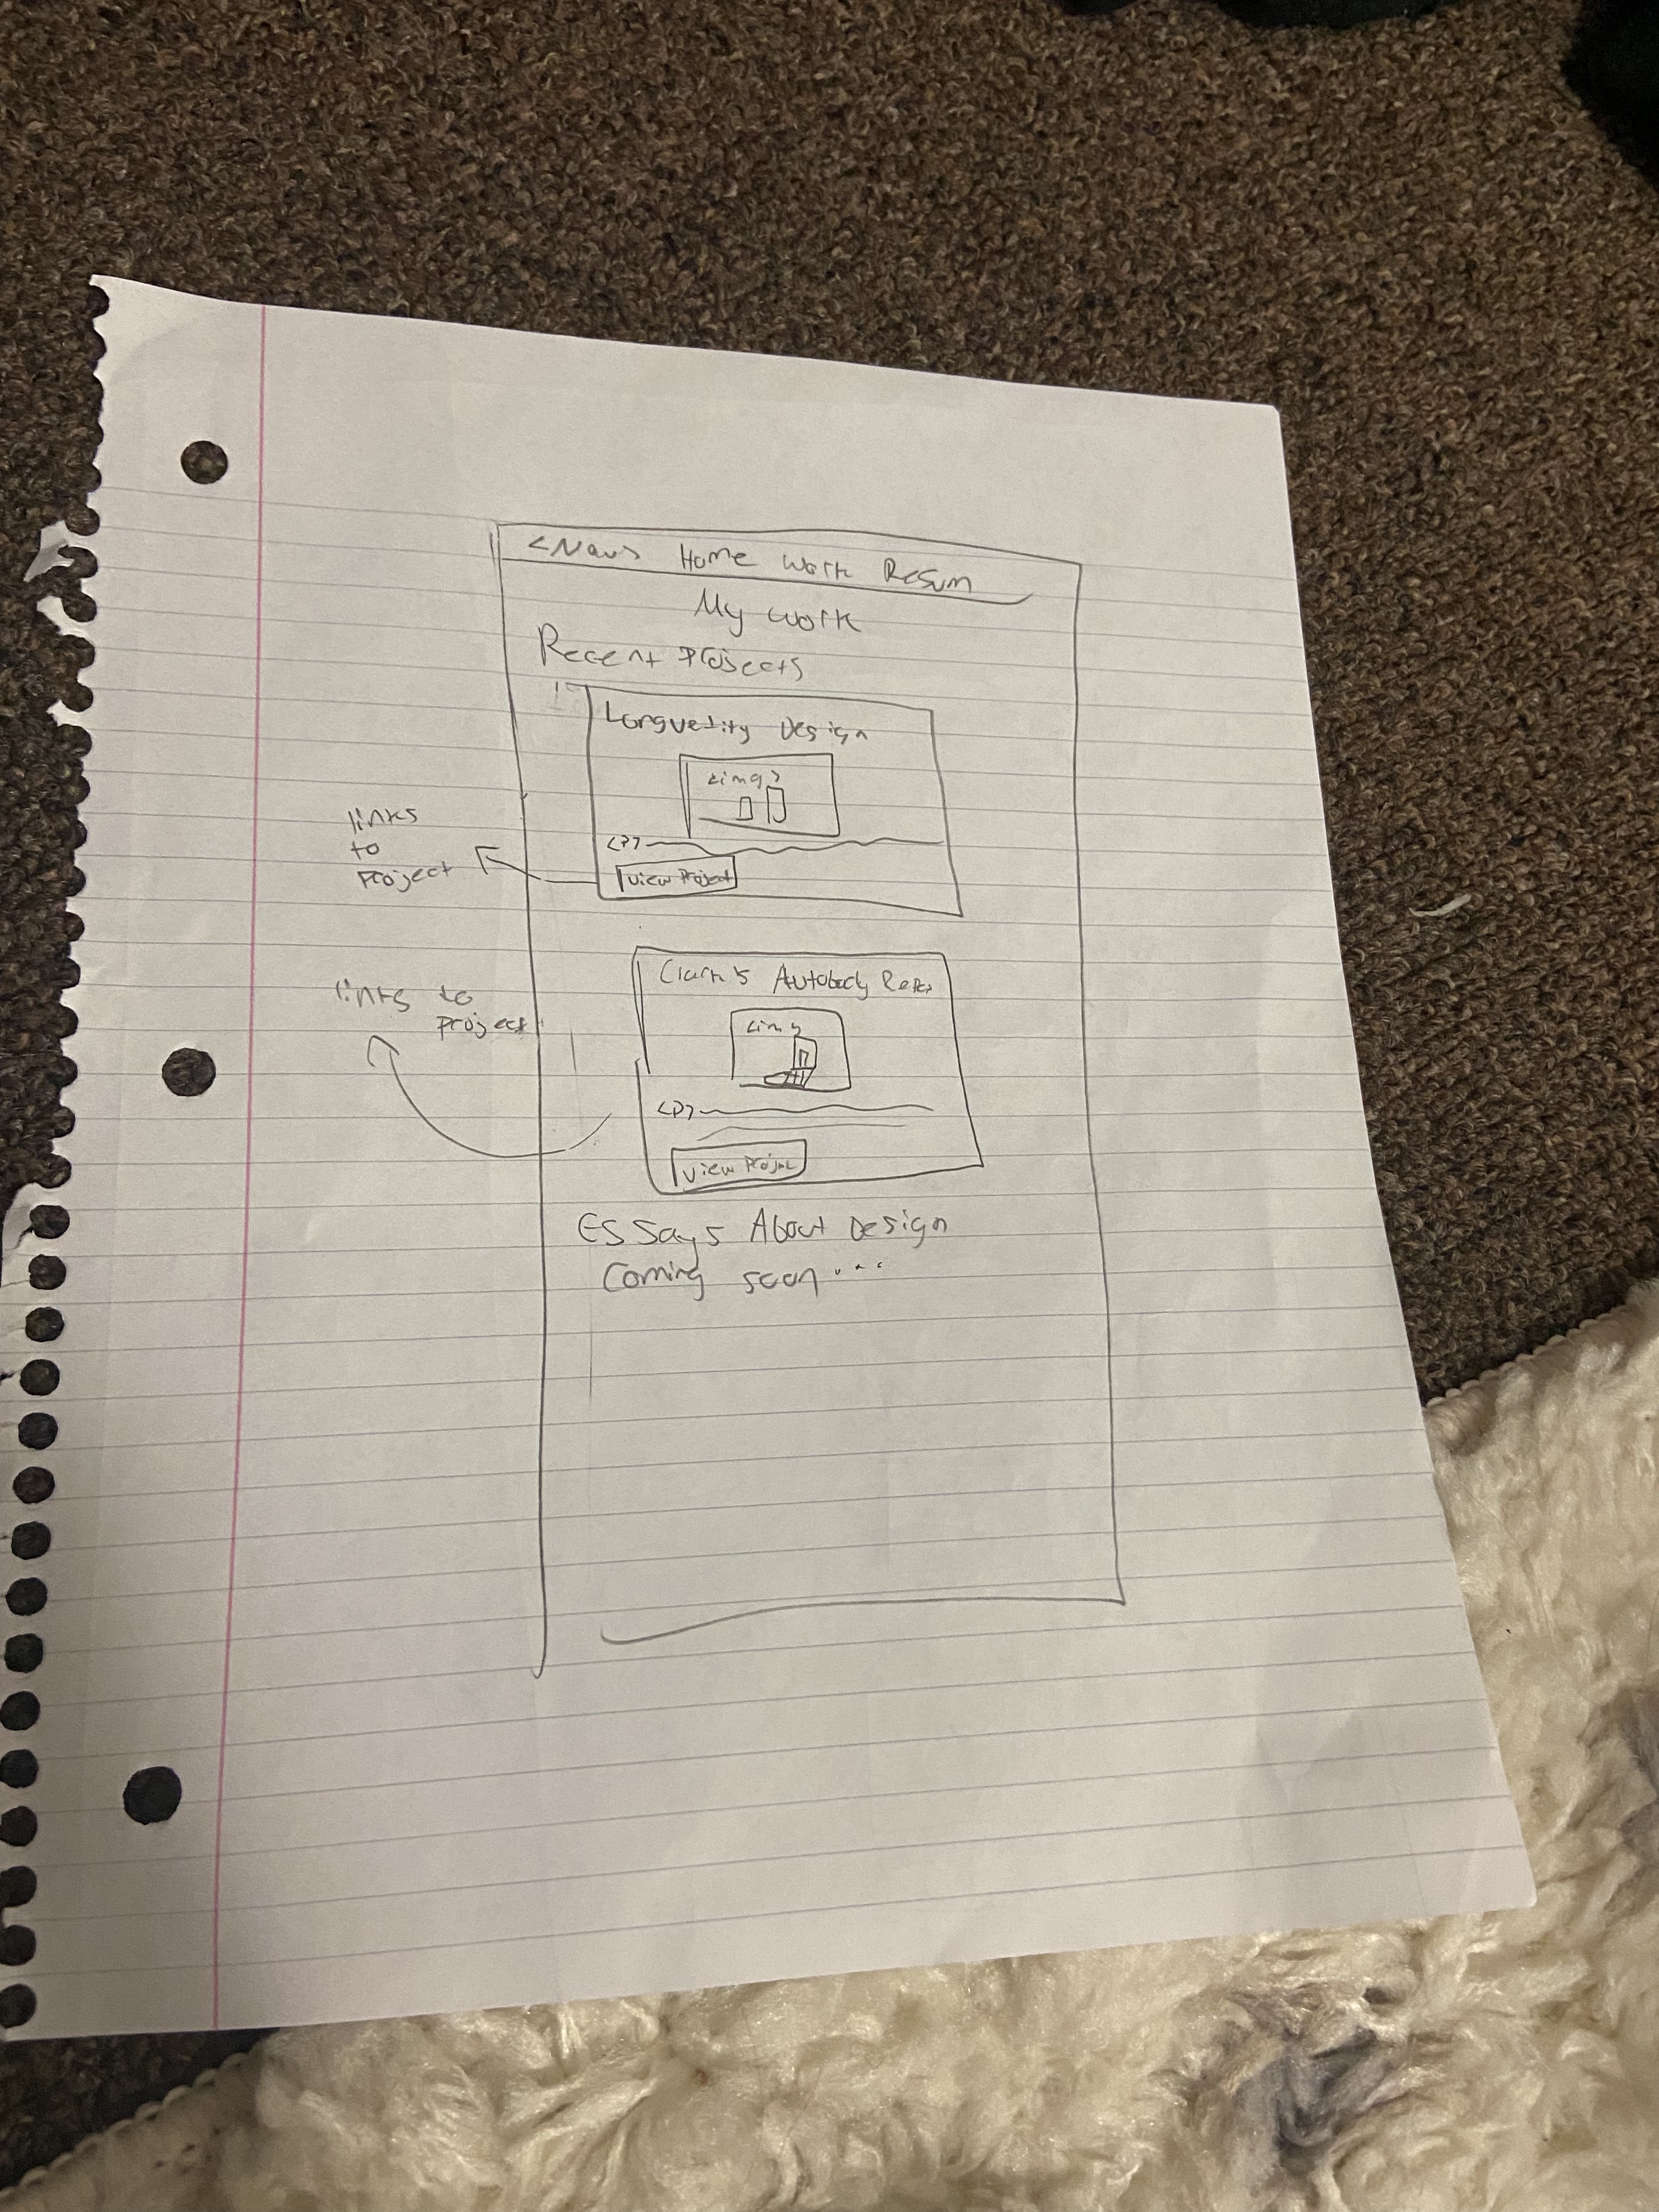 <Nav> Home Work Resum
My work
Recent Projects
Longvetity Design
<img>
<P>
View Project
links
to
Project
Clark's Autobody Repa
<img
<P>
View Projec
links to
project
Essays About Design
Coming soon...